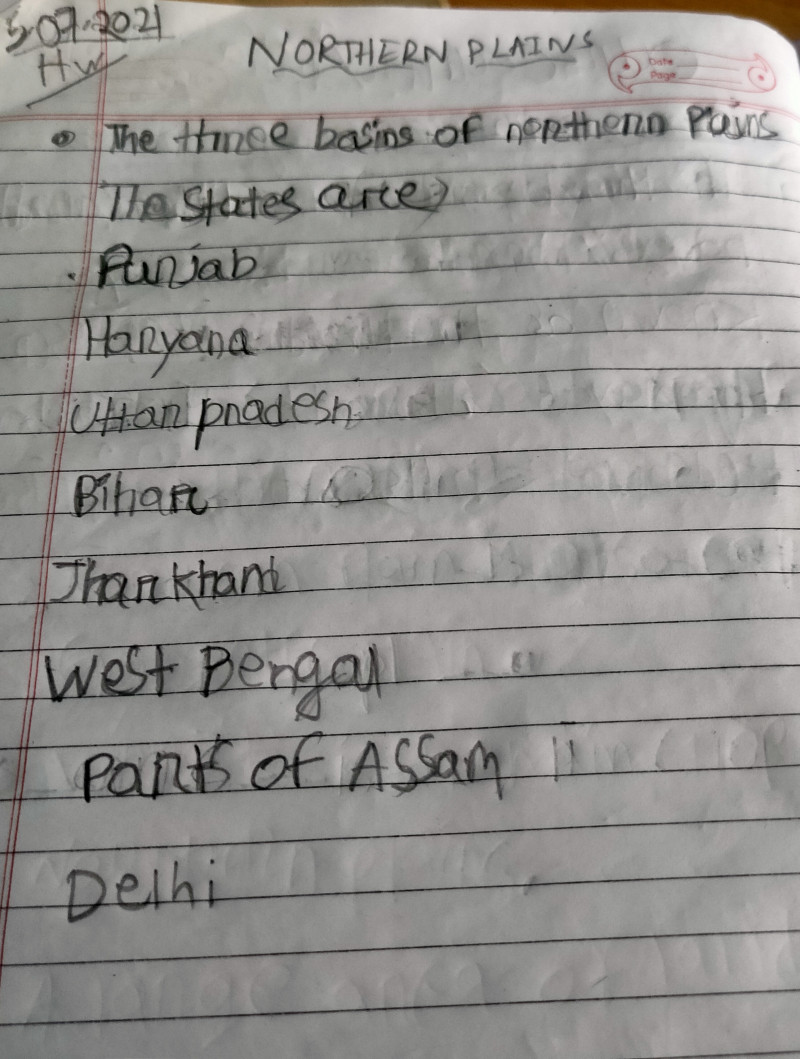 5.07.2021
HW
NORTHERN PLAINS
Date
Page
The three basins of northern Plains
The States are
Punjab
Haryana
Uttar pradesh
Bihar
Jharkhand
West Bengal
parts of Assam
Delhi